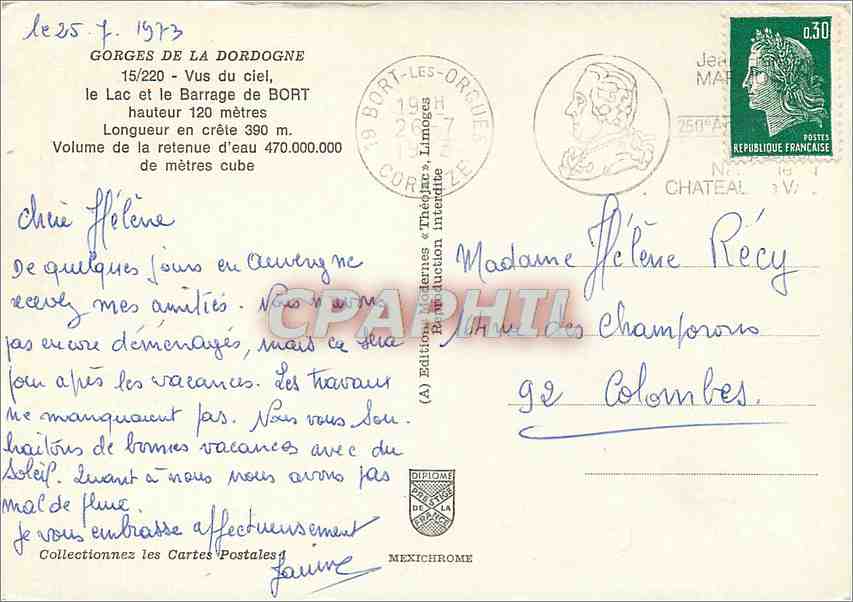 le 25.7.1973
GORGES DE LA DORDOGNE
15/220 - Vus du ciel,
le Lac et le Barrage de BORT
hauteur 120 mètres
Longueur en crête 390 m.
Volume de la retenue d'eau 470.000.000
de mètres cube
chère Hélène
De quelques jours en Auvergne
recevez mes amitiés. Nous n'avons
pas encore déménagés, mais ce sera
pour après les vacances. Les travaux
ne manquaient pas. Nous vous sou-
haitons de bonnes vacances avec du
Soleil. Quant à nous nous avons pas
mal de pluie.
Je vous embrasse affectueusement
Janine
Collectionnez les Cartes Postales !
(A) Editions Modernes « Théojac », Limoges
Reproduction interdite
19 BORT-LES-ORGUES
19 H
26-7
CORREZE
250e
CHATEAU
0,30
POSTES
REPUBLIQUE FRANCAISE
Madame Hélène Récy
rue des Champorons
92 Colombes.
DIPLOME
PRESTIGE
DE LA
FRANCE
MEXICHROME
CPAPHIL